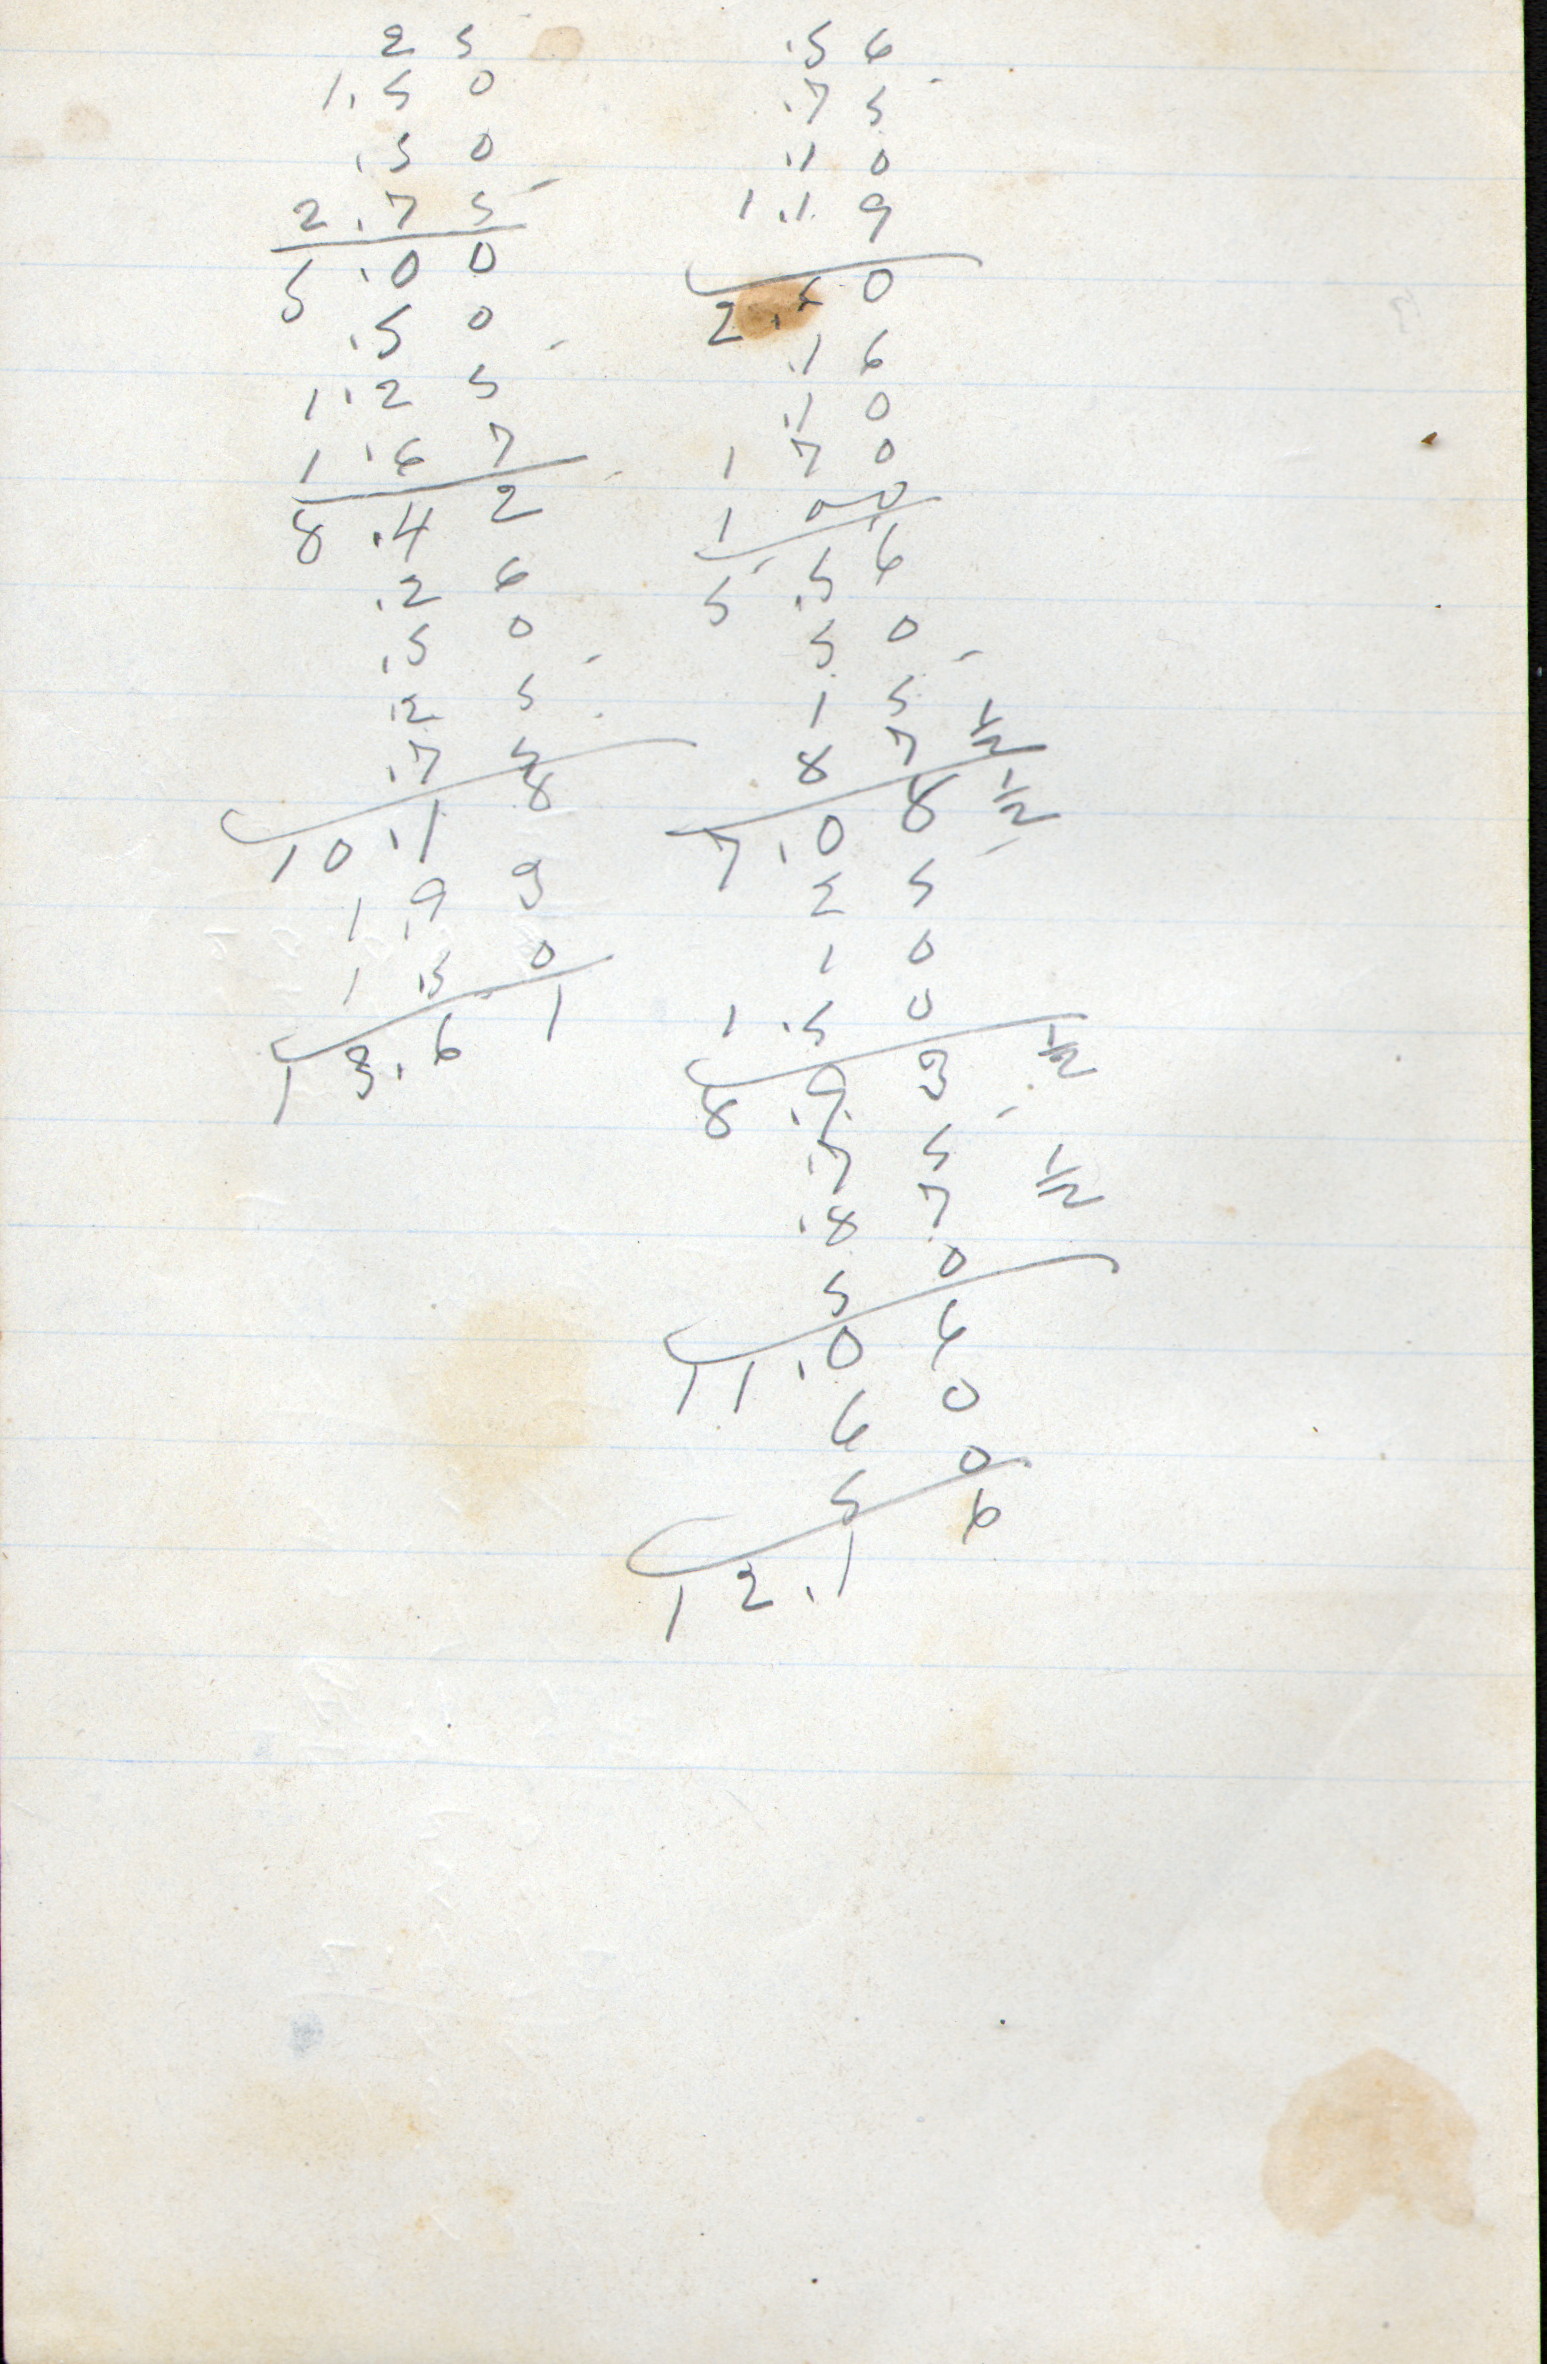 25
1.50
.50
2.75
5.00
.50
1.25
1.67
8.42
.26
.50
.25
.75
10.18
1.93
1.50
13.61
.56
.75
.10
1.19
2.60
.16
.10
1 70
1 00
5.56
50
15
87 1/2
7.08 1/2
25
10
1.50
8.93 1/2
.75
.87 1/2
50
11.06
60
50
12.16